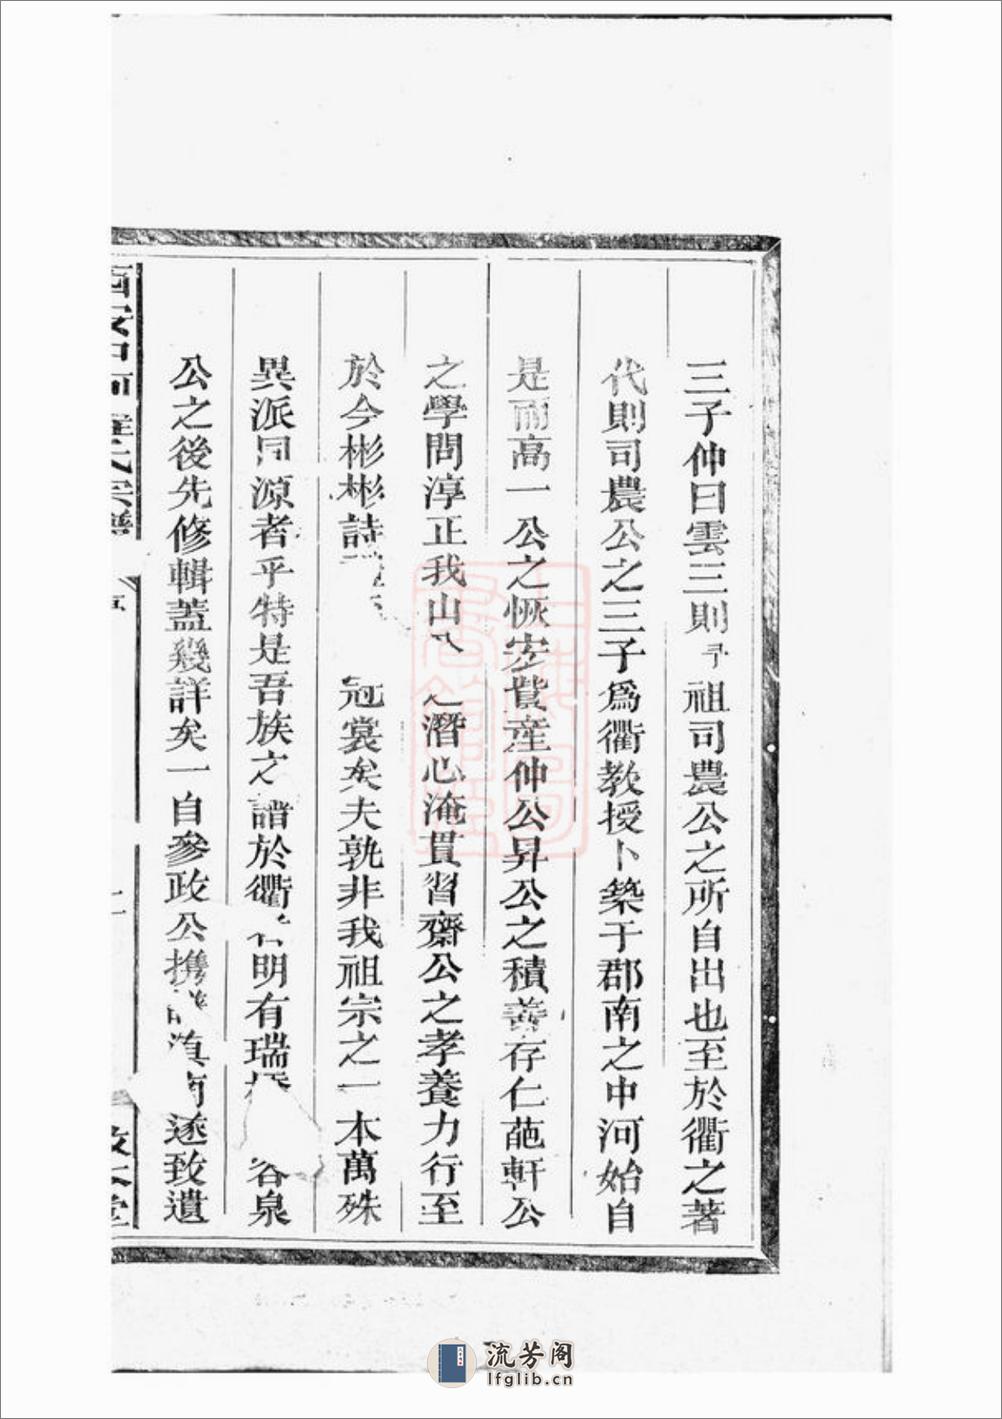 三子仲曰雲三則祖司農公之所自出也至於衢之著
代則司農公之三子爲衢教授卜築于郡南之中河始自
是而高一公之恢宏貲産仲公昇公之積善存仁葩軒公
之學問淳正我山之潛心淹貫習齋公之孝養力行至
於今彬彬詩冠裳矣夫孰非我祖宗之一本萬殊
異派同源者乎特是吾族之譜於衢有明有瑞谷泉
公之後先修輯蓋綦詳矣一自參政公攜滇南遂致遺
西安中河氏宗譜
序
流芳阁
lfglib.cn